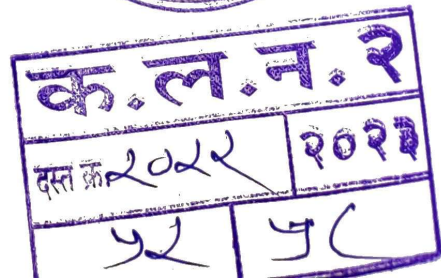 क.ल.न.२
दस्त क्र. २०२२ २०२३
५२ ५८